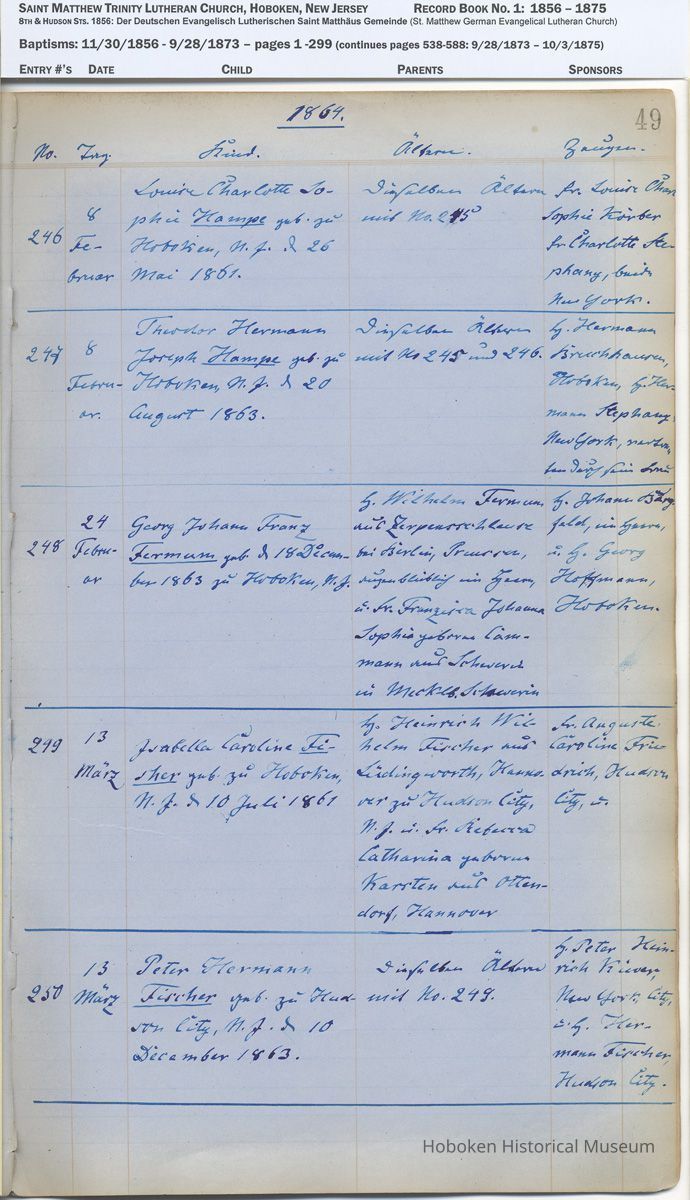 SAINT MATTHEW TRINITY LUTHERAN CHURCH, HOBOKEN, NEW JERSEY RECORD BOOK NO. 1: 1856 – 1875
8TH & HUDSON STS. 1856: Der Deutschen Evangelisch Lutherischen Saint Matthäus Gemeinde (St. Matthew German Evangelical Lutheran Church)
Baptisms: 11/30/1856 - 9/28/1873 – pages 1 -299 (continues pages 538-588: 9/28/1873 – 10/3/1875)
ENTRY #'S DATE CHILD PARENTS SPONSORS
1864.
49
No. Tag. Kind. Ältern. Zeugen.
246
8
Fe-
bruar
Louise Charlotte So-
phie Hampe geb. zu
Hoboken, N. J. d 26
Mai 1861.
Dieselben Ältern
mit No. 245
Fr. Louise Char
Sophie Körber
Fr. Charlotte Ste-
phany, beide
New York.
247
8
Febru-
ar.
Theodor Hermann
Joseph Hampe geb. zu
Hoboken, N. J. d 20
August 1863.
Dieselben Ältern
mit No 245 und 246.
H. Hermann
Bruchhausen,
Hoboken, H. Her-
mann Stephany,
New York, vertre-
ten durch sein Frau
248
24
Febru-
ar
Georg Johann Franz
Fermum geb. d 18 Decem-
ber 1863 zu Hoboken, N. J.
H. Wilhelm Fermum
aus Zerpenschleuse
bei Berlin, Preussen,
augenblicklich im Heere,
u. Fr. Franzisca Johanna
Sophie geborne Cam-
mann aus Schwerin
in Mecklb. Schwerin
H. Johann
feld, im Heere,
u. H. Georg
Hoffmann,
Hoboken.
249
13
März
Isabella Caroline Fi-
scher geb. zu Hoboken,
N. J. d 10 Juli 1861
H. Heinrich Wil-
helm Fischer aus
Lüdingworth, Hanno-
ver zu Hudson City,
N. J. u. Fr. Rebecca
Catharina geborne
Karsten aus Otten-
dorf, Hannover
Fr. Auguste
Caroline Frie-
drich, Hudson
City, u.
250
13
März
Peter Hermann
Fischer geb. zu Hud-
son City, N. J. d 10
December 1863.
Dieselben Ältern
mit No. 249.
H. Peter Hein-
rich
New York, City,
u. H. Her-
mann Fischer,
Hudson City.
Hoboken Historical Museum